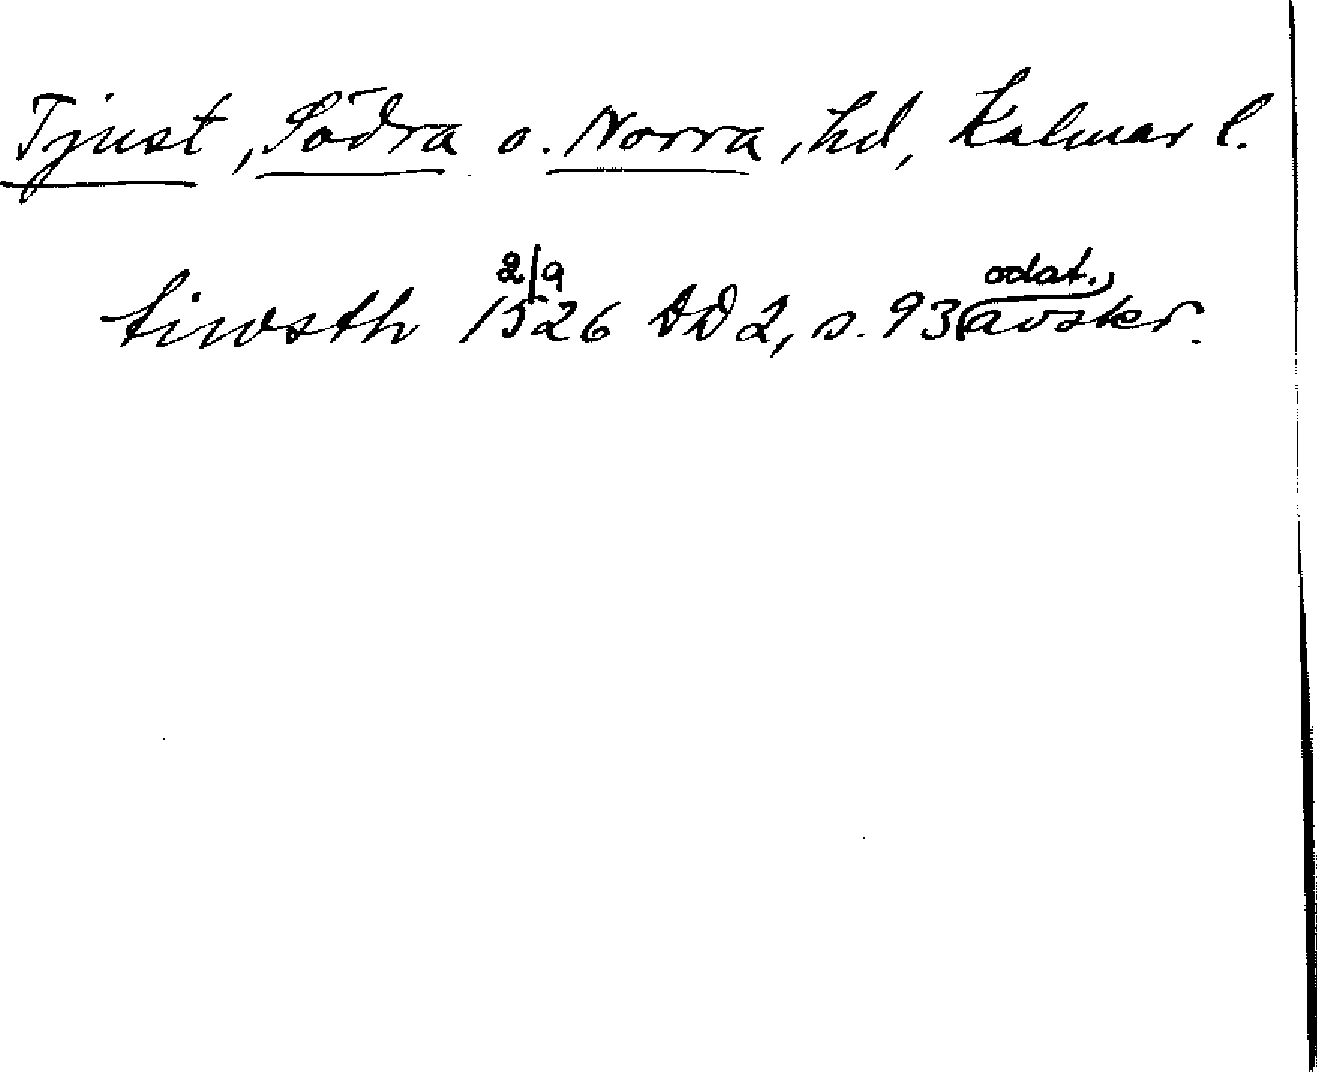 Tjust, Södra o. Norra, hd, Kalmar l.
tiwsth 2/9 1526 DD 2, s. 93 (odat. avskr.